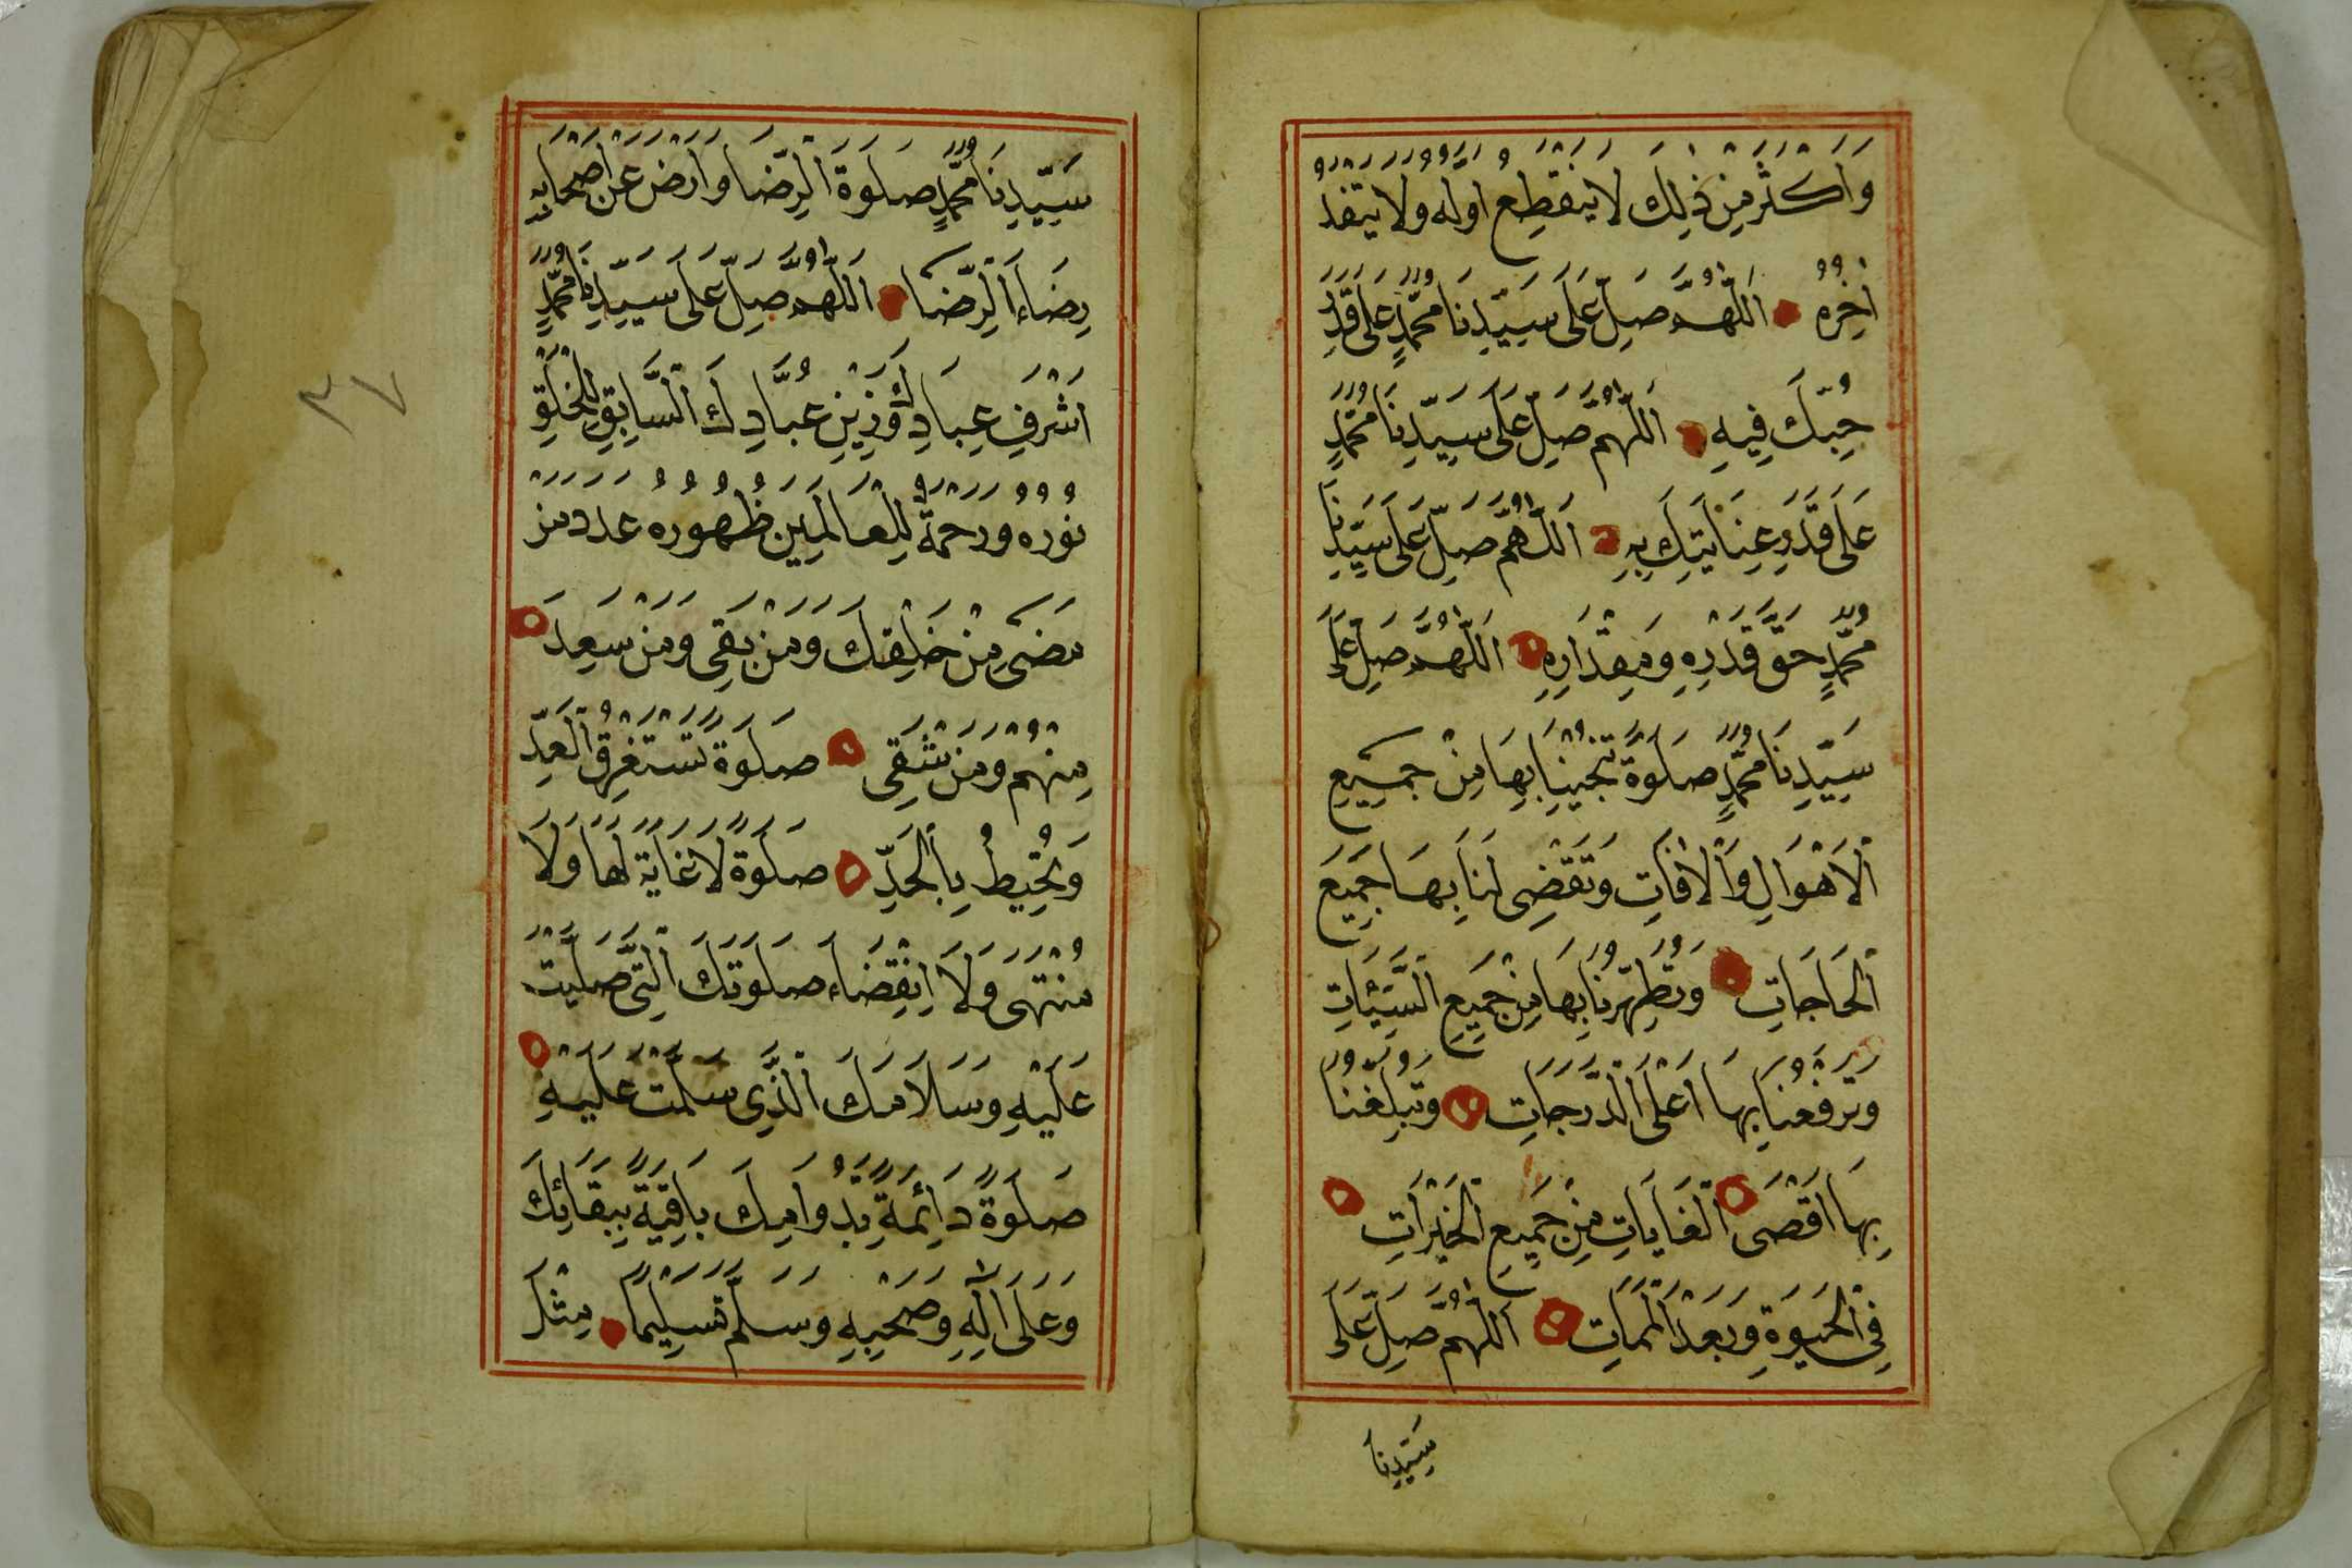 وَاَكْثَرَ مِنْ ذٰلِكَ لَا يَنْقَطِعُ اَوَّلُهُ وَلَا يَنْفَدُ
اٰخِرُهُ اَللّٰهُمَّ صَلِّ عَلَى سَيِّدِنَا مُحَمَّدٍ عَلَى قَدْرِ
حُبِّكَ فِيهِ اَللّٰهُمَّ صَلِّ عَلَى سَيِّدِنَا مُحَمَّدٍ
عَلَى قَدْرِ عِنَايَتِكَ بِهِ اَللّٰهُمَّ صَلِّ عَلَى سَيِّدِنَا
مُحَمَّدٍ حَقَّ قَدْرِهِ وَمِقْدَارِهِ اَللّٰهُمَّ صَلِّ عَلَى
سَيِّدِنَا مُحَمَّدٍ صَلَوةً تُنْجِينَا بِهَا مِنْ جَمِيعِ
اْلاَهْوَالِ وَاْلاٰفَاتِ وَتَقْضِى لَنَا بِهَا جَمِيعَ
الْحَاجَاتِ وَتُطَهِّرُنَا بِهَا مِنْ جَمِيعِ السَّيِّئَاتِ
وَتَرْفَعُنَا بِهَا اَعْلَى الدَّرَجَاتِ وَتُبَلِّغُنَا
بِهَا اَقْصَى الْغَايَاتِ مِنْ جَمِيعِ الْخَيْرَاتِ
فِى الْحَيَوةِ وَبَعْدَ الْمَمَاتِ اَللّٰهُمَّ صَلِّ عَلَى
سَيِّدِنَا
سَيِّدِنَا مُحَمَّدٍ صَلَوةَ الرِّضَا وَارْضَ عَنْ اَصْحَابِهِ
رِضَاءَ الرِّضَا اَللّٰهُمَّ صَلِّ عَلَى سَيِّدِنَا مُحَمَّدٍ
اَشْرَفِ عِبَادِكَ وَزَيْنِ عُبَّادِكَ السَّابِقِ لِلْخَلْقِ
نُورُهُ وَرَحْمَةٌ لِلْعَالَمِينَ ظُهُورُهُ عَدَدَ مَنْ
مَضَى مِنْ خَلْقِكَ وَمَنْ بَقِىَ وَمَنْ سَعِدَ
مِنْهُمْ وَمَنْ شَقِىَ صَلَوةً تَسْتَغْرِقُ الْعَدَّ
وَتُحِيطُ بِالْحَدِّ صَلَوةً لَا غَايَةَ لَهَا وَلَا
مُنْتَهَى وَلَا اِنْقِضَاءَ صَلَوتَكَ الَّتِى صَلَّيْتَ
عَلَيْهِ وَسَلَامَكَ الَّذِى سَلَّمْتَ عَلَيْهِ
صَلَوةً دَائِمَةً بِدَوَامِكَ بَاقِيَةً بِبَقَائِكَ
وَعَلَى اٰلِهِ وَصَحْبِهِ وَسَلِّمْ تَسْلِيمًا مِثْلَ
٣٧